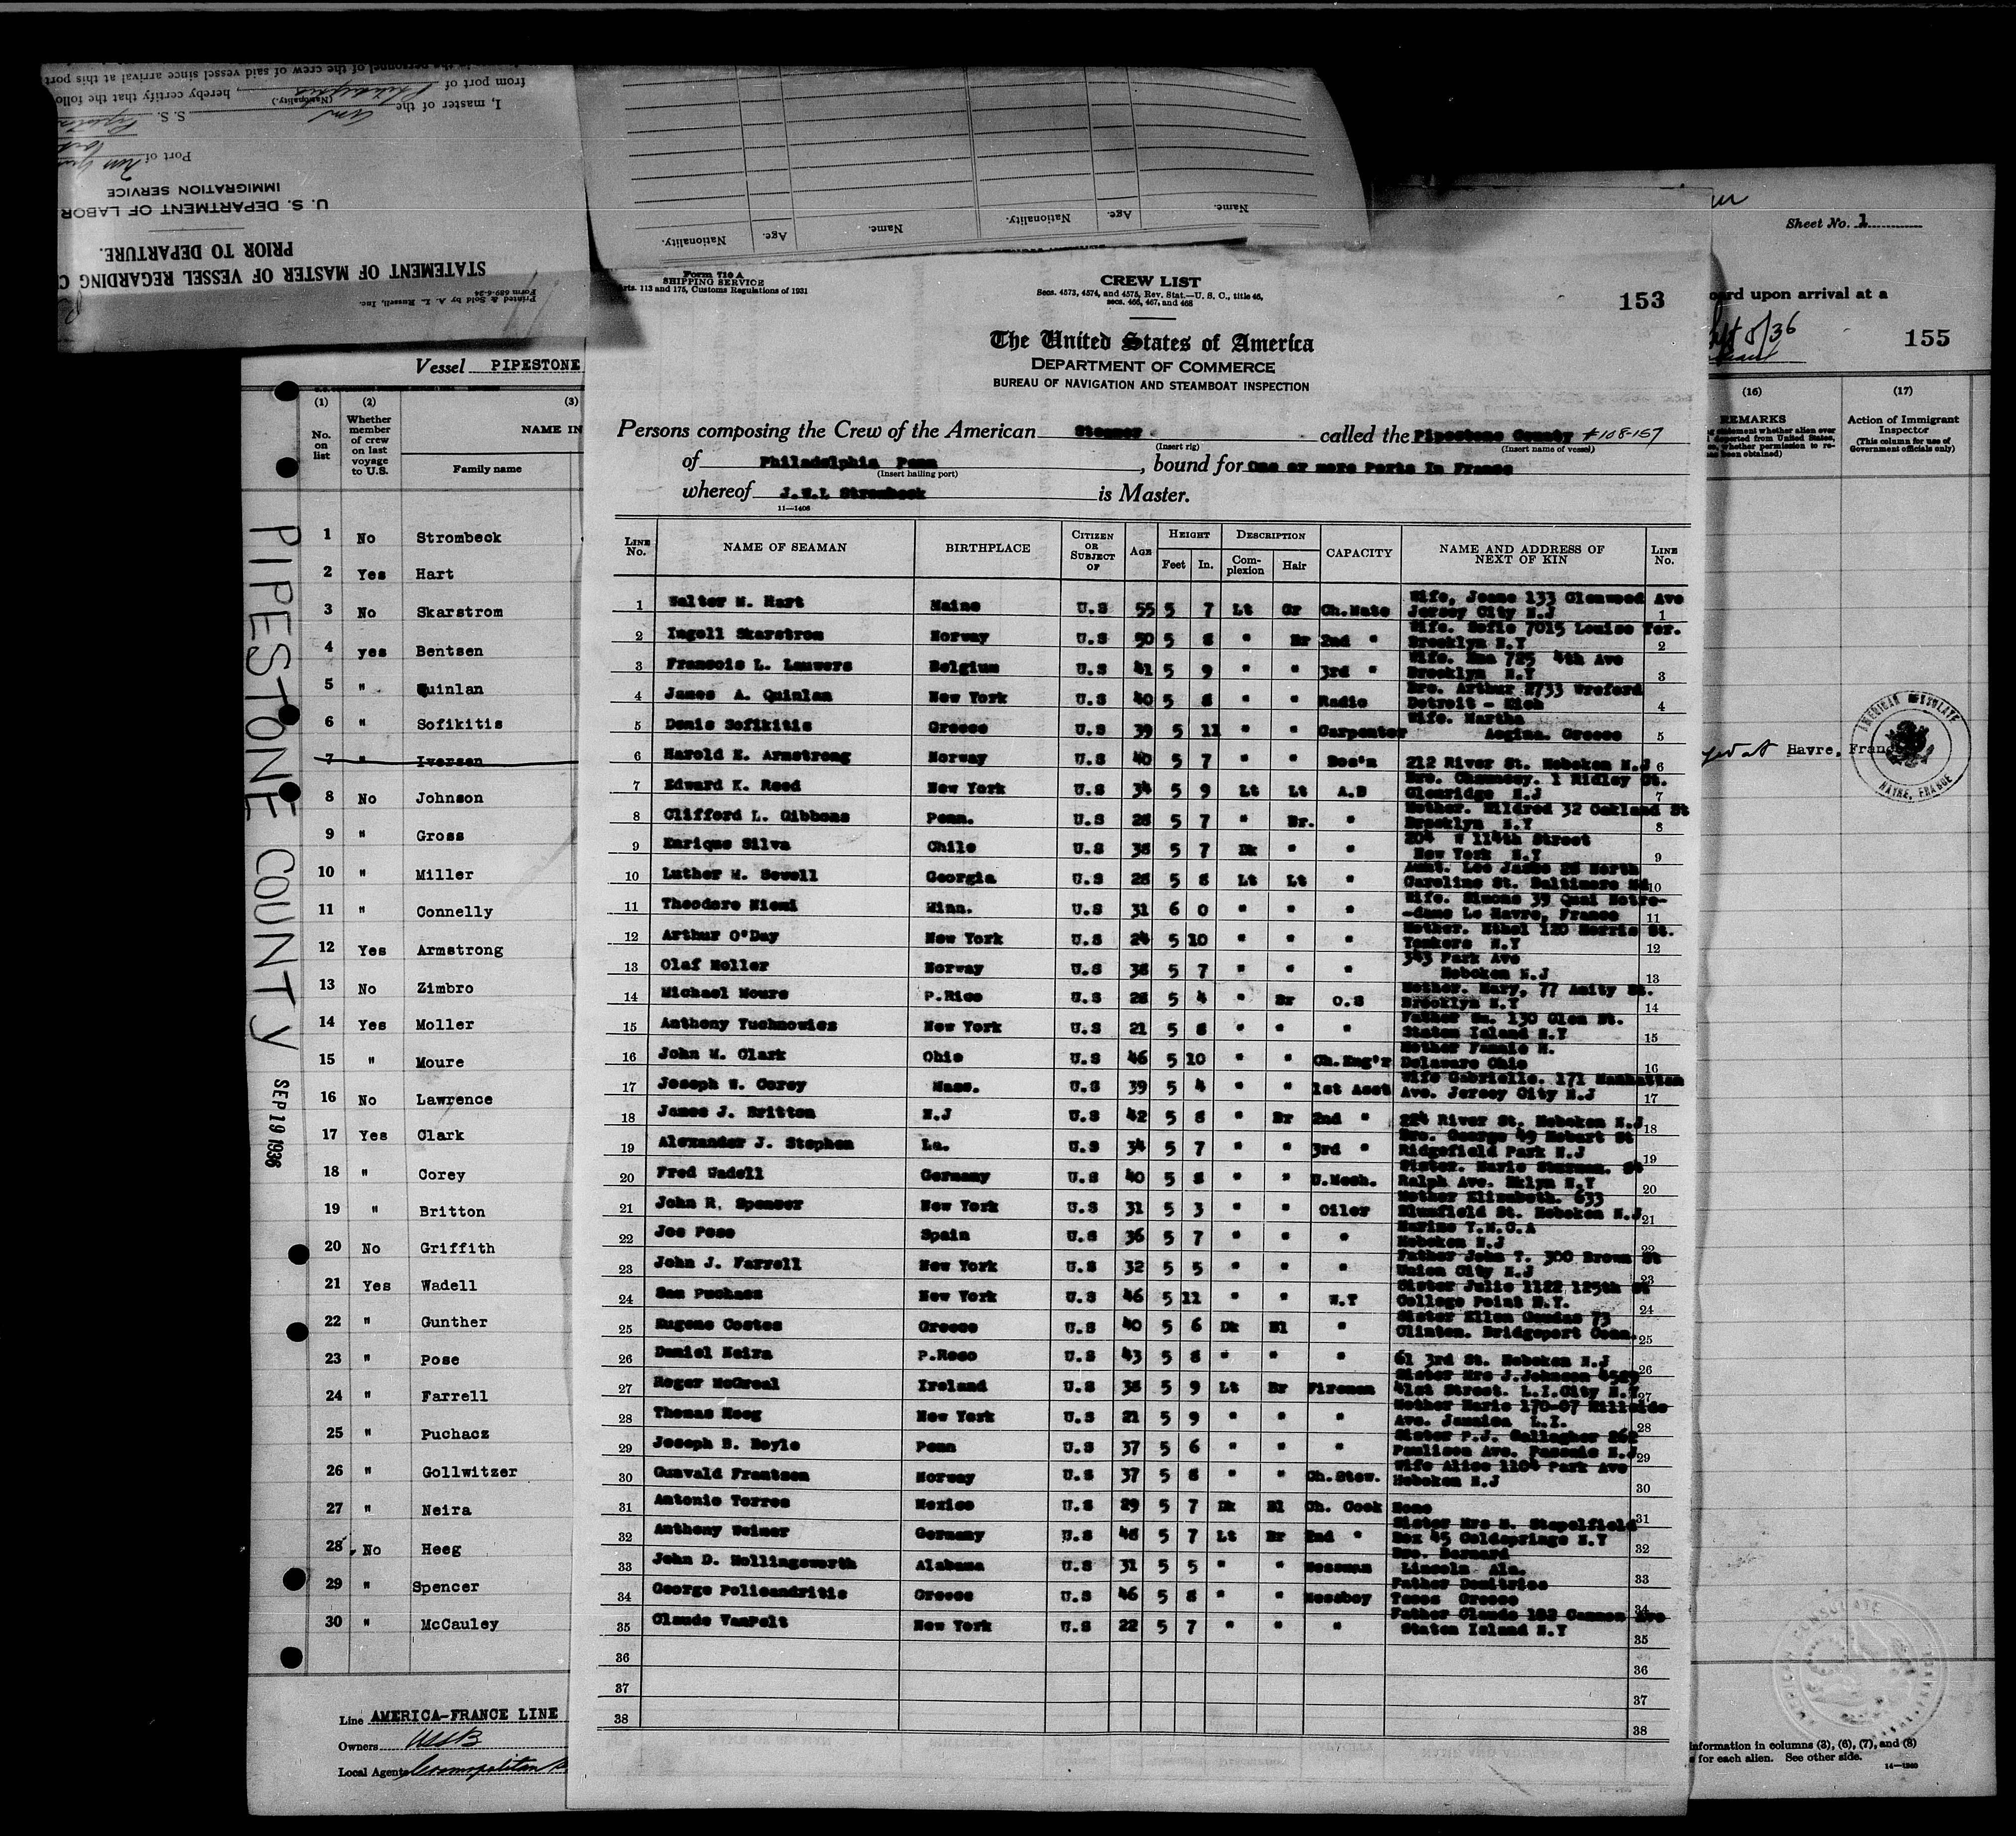 Sheet No. 1
upon arrival at a
155
(16)
(17)
REMARKS
Action of Immigrant
Inspector
(This column for use of
Government officials only)
Havre, France
AMERICAN CONSULATE
HAVRE, FRANCE
information in columns (3), (6), (7), and (8)
for each alien. See other side.
14—1240
from port of
, hereby certify that the
I, master of the
(Nationality.)
S. S.
Port of
IMMIGRATION SERVICE
U. S. DEPARTMENT OF LABOR
PRIOR TO DEPARTURE.
STATEMENT OF MASTER OF VESSEL REGARDING
Form 689-6-24
Printed & Sold by L. A. Russell, Inc.
Name.
Age.
Nationality.
Name.
Age.
Nationality.
Vessel PIPESTONE
(1)
(2)
(3)
No.
on
list
Whether
member
of crew
on last
voyage
to U.S.
NAME IN
Family name
1 No Strombeck
2 Yes Hart
3 No Skarstrom
4 yes Bentsen
5 " Quinlan
6 " Sofikitis
7 " Iversen
8 No Johnson
9 " Gross
10 " Miller
11 " Connelly
12 Yes Armstrong
13 No Zimbro
14 Yes Moller
15 " Moure
16 No Lawrence
17 Yes Clark
18 " Corey
19 " Britton
20 No Griffith
21 Yes Wadell
22 " Gunther
23 " Pose
24 " Farrell
25 " Puchacz
26 " Gollwitzer
27 " Neira
28 No Heeg
29 " Spencer
30 " McCauley
PIPESTONE COUNTY SEP 19 1936
Line AMERICA-FRANCE LINE
Owners USSB
Local Agents Cosmopolitan
Form 710 A
SHIPPING SERVICE
Arts. 113 and 175, Customs Regulations of 1931
CREW LIST
Secs. 4573, 4574, and 4575, Rev. Stat.—U. S. C., title 46,
secs. 466, 467, and 468
153
The United States of America
DEPARTMENT OF COMMERCE
BUREAU OF NAVIGATION AND STEAMBOAT INSPECTION
Persons composing the Crew of the American Steamer called the Pipestone County #108-157
(Insert rig) (Insert name of vessel)
of Philadelphia Penn, bound for One or more Ports In France
(Insert hailing port)
whereof J.W.L Strombeck is Master.
11—1406
LINE No. NAME OF SEAMAN BIRTHPLACE CITIZEN OR SUBJECT OF AGE HEIGHT Feet In. DESCRIPTION Complexion Hair CAPACITY NAME AND ADDRESS OF NEXT OF KIN LINE No.
1 Walter W. Hart Maine U.S 55 5 7 Lt Gr Ch.Mate Wife, Jeane 133 Glenwood Ave
Jersey City N.J 1
2 Ingolf Skarstrom Norway U.S 50 5 8 " Br 2nd " Wife. Sofie 7015 Louise Ter.
Brooklyn N.Y 2
3 Francois L. Lauwers Belgium U.S 41 5 9 " " 3rd " Wife. 725 4th Ave
Brooklyn N.Y 3
4 James A. Quinlan New York U.S 40 5 8 " " Radio Bro. Arthur 2733 Wreford
Detroit - Mich 4
5 Denis Sofikitis Greece U.S 39 5 11 " " Carpenter Wife. Martha
Aegina. Greece 5
6 Harold E. Armstrong Norway U.S 40 5 7 " " Bos'n 212 River St. Hoboken N.J 6
7 Edward K. Reed New York U.S 34 5 9 Lt Lt A.B Bro. Chauncey. 1 Ridley Ct.
Glenridge N.J 7
8 Clifford L. Gibbons Penn. U.S 28 5 7 " Br. " Mother. Mildred 32 Oakland St
Brooklyn N.Y 8
9 Enrique Silva Chile U.S 38 5 7 Dk " " 204 W 114th Street
New York N.Y 9
10 Luther M. Sewell Georgia U.S 28 5 8 Lt Lt " Aunt. Lee 28 North
Caroline St. Baltimore Md 10
11 Theodore Niemi Minn. U.S 31 6 0 " " " Wife. Simone 39 Quai Notre-
-dame Le Havre, France 11
12 Arthur O'Day New York U.S 24 5 10 " " " Mother. Ethel 120 Morris St.
Yonkers N.Y 12
13 Olaf Moller Norway U.S 38 5 7 " " " 343 Park Ave
Hoboken N.J 13
14 Michael Moure P.Rico U.S 28 5 4 " Br O.S Mother. Mary, 77 Amity St.
Brooklyn N.Y 14
15 Anthony Yuchnowicz New York U.S 21 5 8 " " " Father Wm. 130 Glen St.
Staten Island N.Y 15
16 John M. Clark Ohio U.S 46 5 10 " " Ch.Eng'r Mother Fannie M.
Delaware Ohio 16
17 Joseph W. Corey Mass. U.S 39 5 4 " " 1st Asst Wife Gabrielle. 171 Manhattan
Ave. Jersey City N.J 17
18 James J. Britton N.J U.S 42 5 8 " Br 2nd " 224 River St. Hoboken N.J 18
19 Alexander J. Stephen La. U.S 34 5 7 " " 3rd " Bro. George 49 Hobart St
Ridgefield Park N.J 19
20 Fred Wadell Germany U.S 40 5 8 " " U.Mech. Sister. Marie
Ralph Ave. Bklyn N.Y 20
21 John R. Spencer New York U.S 31 5 3 " " Oiler Mother Elizabeth. 633
Blumfield St. Hoboken N.J 21
22 Joe Pose Spain U.S 36 5 7 " " " Marine Y.M.C.A
Hoboken N.J 22
23 John J. Farrell New York U.S 32 5 5 " " " Father John T. 300 Brown St
Union City N.J 23
24 Sam Puchacz New York U.S 46 5 11 " " W.T Sister Julie 1122 125th St
College Point N.Y. 24
25 Eugene Costes Greece U.S 40 5 6 Dk Bl " Sister Ellen 73
Clinton. Bridgeport Conn. 25
26 Daniel Neira P.Reco U.S 43 5 8 " " " 61 3rd St. Hoboken N.J 26
27 Roger McGreal Ireland U.S 38 5 9 Lt Br Fireman Sister Mrs J.Johnson 4529
41st Street. L.I.City N.Y 27
28 Thomas Heeg New York U.S 21 5 9 " " " Mother Marie 170-07 Hillside
Ave. Jamaica L.I. 28
29 Joseph B. Boyle Penn U.S 37 5 6 " " " Sister P.J. Gallagher 262
Paulison Ave. Passaic N.J 29
30 Gunvald Frantsen Norway U.S 37 5 8 " " Ch.Stew. Wife Alice 1104 Park Ave
Hoboken N.J 30
31 Antonio Torres Mexico U.S 29 5 7 Dk Bl Ch. Cook None 31
32 Anthony Weiner Germany U.S 48 5 7 Lt Br 2nd " Sister Mrs M. Stapelfield
Box 45 Coldsprings N.Y 32
33 John D. Hollingsworth Alabama U.S 31 5 5 " " Messman Bro. Bernard
Lincoln Ala. 33
34 George Policandritis Greece U.S 46 5 8 " " Messboy Father Demitrios
Greece 34
35 Claude VanPelt New York U.S 22 5 7 " " " Father Claude 182 Cannon Ave
Staten Island N.Y 35
36 36
37 37
38 38